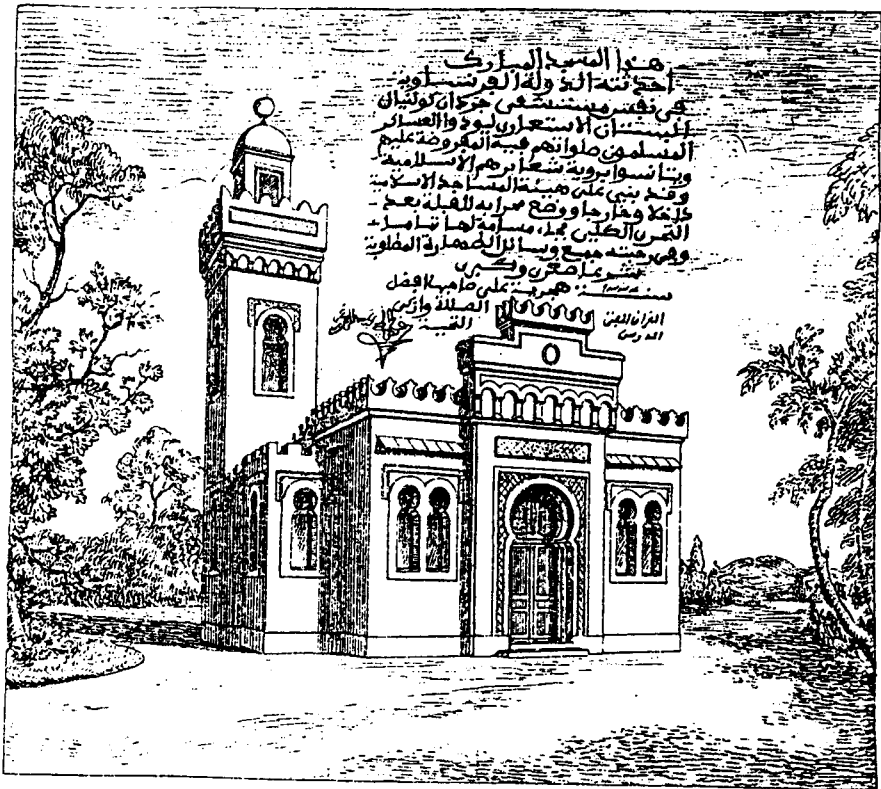 هذا المسجد المبارك
احدثته الدولة الفرنساوية
في نفس مستشفى جردان كولنيال
البستان الاستعماري ليوذوا العساكر
المسلمون صلواتهم فيه المفروضة عليهم
ويتانسوا بروية شعايرهم الاسلامية
وقد بني على هيئة المساجد الاسلامية
داخلا وخارجا ووضع محرابه للقبلة بعد
التحري الكلي
وفي رحبته جميع وسائل الطهارة المطلوبة
سنة هجرية على صاحبها افضل
الصلاة وازكى
التحية
المدرس